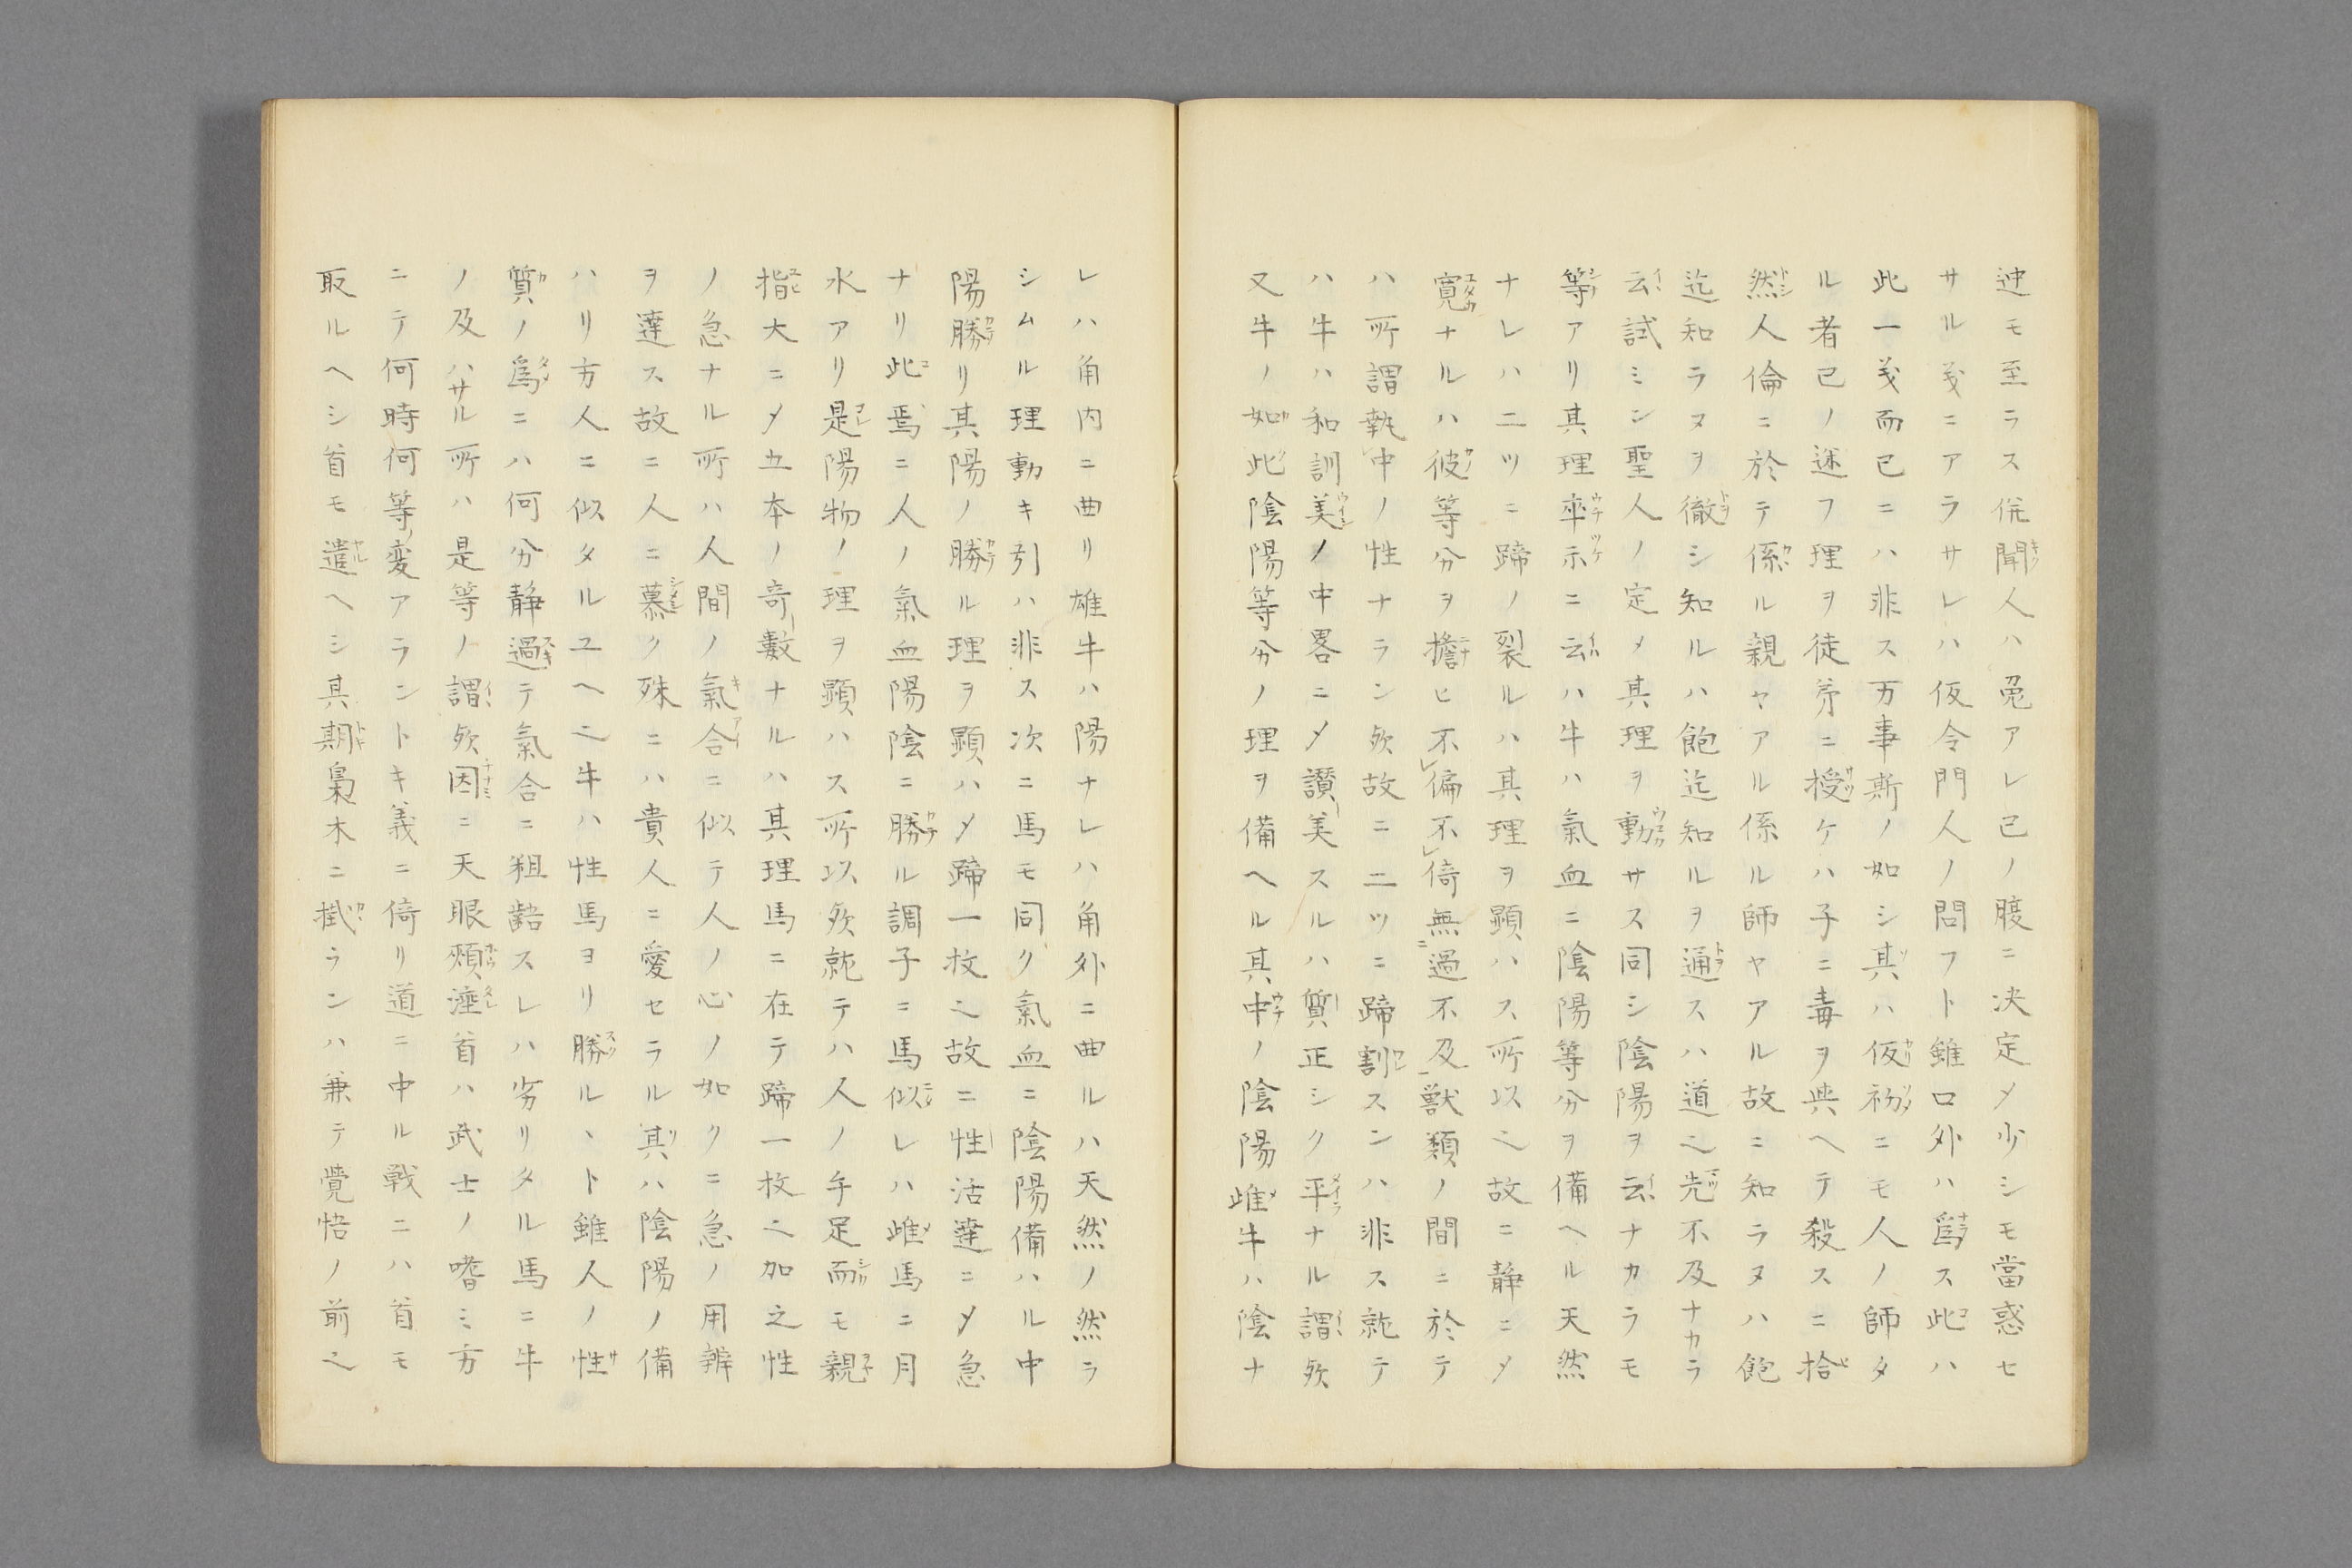 迚モ至ラス併聞人ハ兎アレ己ノ腹ニ决定メ少シモ當惑セ
サル義ニアラサレハ仮令門人ノ問フト雖口外ハ爲ス此ハ
此一義而已ニハ非ス万事斯ノ如シ其ハ仮初ニモ人ノ師タ
ル者己ノ迷フ理ヲ徒弟ニ授ケハ子ニ毒ヲ與ヘテ殺スニ拾
然人倫ニ於テ係ル親ヤアル係ル師ヤアル故ニ知ラヌハ飽
迄知ラヌヲ徹シ知ルハ飽迄知ルヲ通スハ道之先不及ナカラ
云試ミン聖人ノ定メ其理ヲ動サス同シ陰陽ヲ云ナカラモ
等アリ其理率示ニ云ハ牛ハ氣血ニ陰陽等分ヲ備ヘル天然
ナレハ二ツニ蹄ノ裂ルハ其理ヲ顕ハス所以之故ニ静ニメ
寛ナルハ彼等分ヲ擔ヒ不偏不倚無過不及獣類ノ間ニ於テ
ハ所謂執中ノ性ナラン欤故ニ二ツニ蹄割スンハ非ス就テ
ハ牛ハ和訓美ノ中畧ニメ讃美スルハ質正シク平ナル謂欤
又牛ノ如此陰陽等分ノ理ヲ備ヘル其中ノ陰陽雌牛ハ陰ナ
レハ角内ニ曲リ雄牛ハ陽ナレハ角外ニ曲ルハ天然ノ然ラ
シムル理動キ引ハ非ス次ニ馬モ同ク氣血ニ陰陽備ハル中
陽勝リ其陽ノ勝ル理ヲ顕ハメ蹄一枚之故ニ性活達ニメ急
ナリ此焉ニ人ノ氣血陽陰ニ勝ル調子ニ馬似レハ雌馬ニ月
水アリ是陽物ノ理ヲ顕ハス所以欤就テハ人ノ手足而モ親
指大ニメ五本ノ奇數ナルハ其理馬ニ在テ蹄一枚之加之性
ノ急ナル所ハ人間ノ氣合ニ似テ人ノ心ノ如クニ急ノ用辨
ヲ達ス故ニ人ニ慕ク殊ニハ貴人ニ愛セラル其ハ陰陽ノ備
ハリ方人ニ似タルユヘ之牛ハ性馬ヨリ勝ルヽト雖人ノ性
質ノ爲ニハ何分静過テ氣合ニ粗齬スレハ劣リタル馬ニ牛
ノ及ハサル所ハ是等ノ謂欤因ニ天眼頰漥首ハ武士ノ嗜ミ方
ニテ何時何等変アラントキ義ニ倚リ道ニ中ル戦ニハ首モ
取ルヘシ首モ遣ヘシ其期梟木ニ掛ランハ兼テ覚悟ノ前之